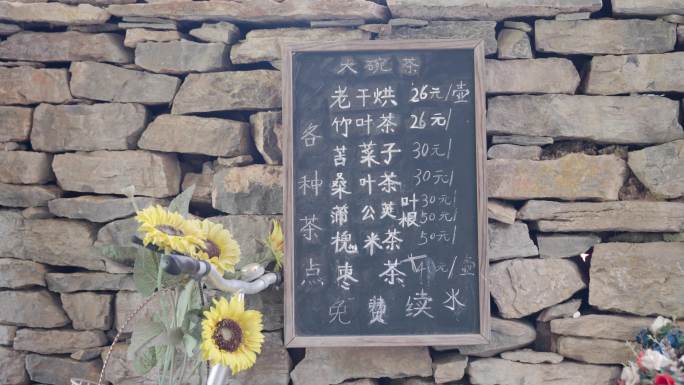 大碗茶
各种茶点
老干烘 26元/壶
竹叶茶 26元/
苦菜子 30元/
桑叶茶
蒲公英 叶 30元/
根 50元/
槐米茶 50元/
枣茶 40元/壶
免费续水